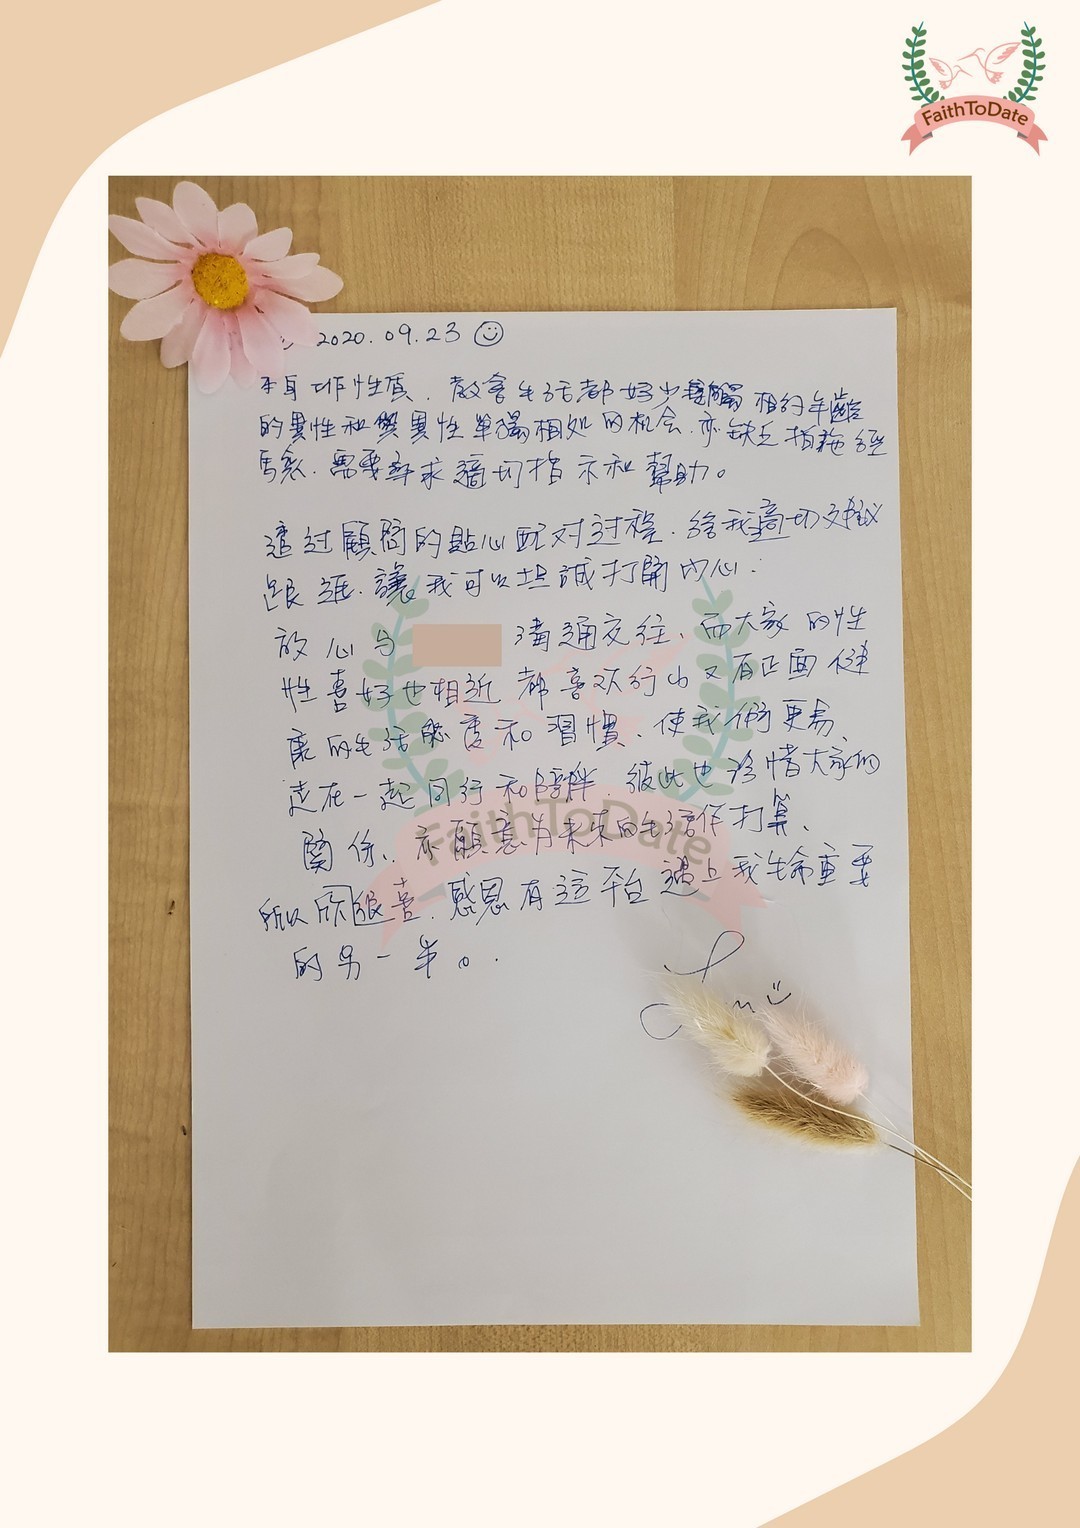 FaithToDate
2020.09.23
本身工作性质，教會生活都好少接觸相約年齡
的異性和與異性單獨相処的机会，亦缺乏拍拖經
馬数，需要尋求適切指示和幫助。
透过顧問的貼心配对过程，给我適切支持
跟進，讓我可以坦誠打開内心.
放心与 溝通交往、而大家的性
性喜好也相近 都喜欢行山又有正面健
康的生活態度和習慣、使我們更易、
走在一起同行和陪伴，彼此也珍惜大家的
関係、亦願意为未來的生活作打算、
所以很喜，感恩有這平台遇上我生命重要
的另一半。
FaithToDate